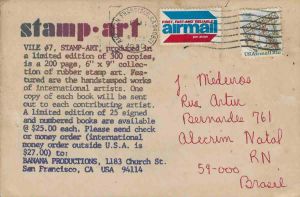 stamp·art
VILE #7, STAMP-ART, produced in
a limited edition of 300 copies,
is a 200 page, 6" x 9" collec-
tion of rubber stamp art. Fea-
tured are the handstamped works
of international artists. One
copy of each book will be sent
out to each contributing artist.
A limited edition of 25 signed
and numbered books are available
@ $25.00 each. Please send check
or money order (international
money order outside U.S.A. is
$27.00) to:
BANANA PRODUCTIONS, 1183 Church St.
San Francisco, CA USA 94114
FAST, SAFE AND RELIABLE
airmail
USAirmail
J Medeiros
Rua Artur
Bernardes 761
Alecrim Natal
RN
59-000
Brasil